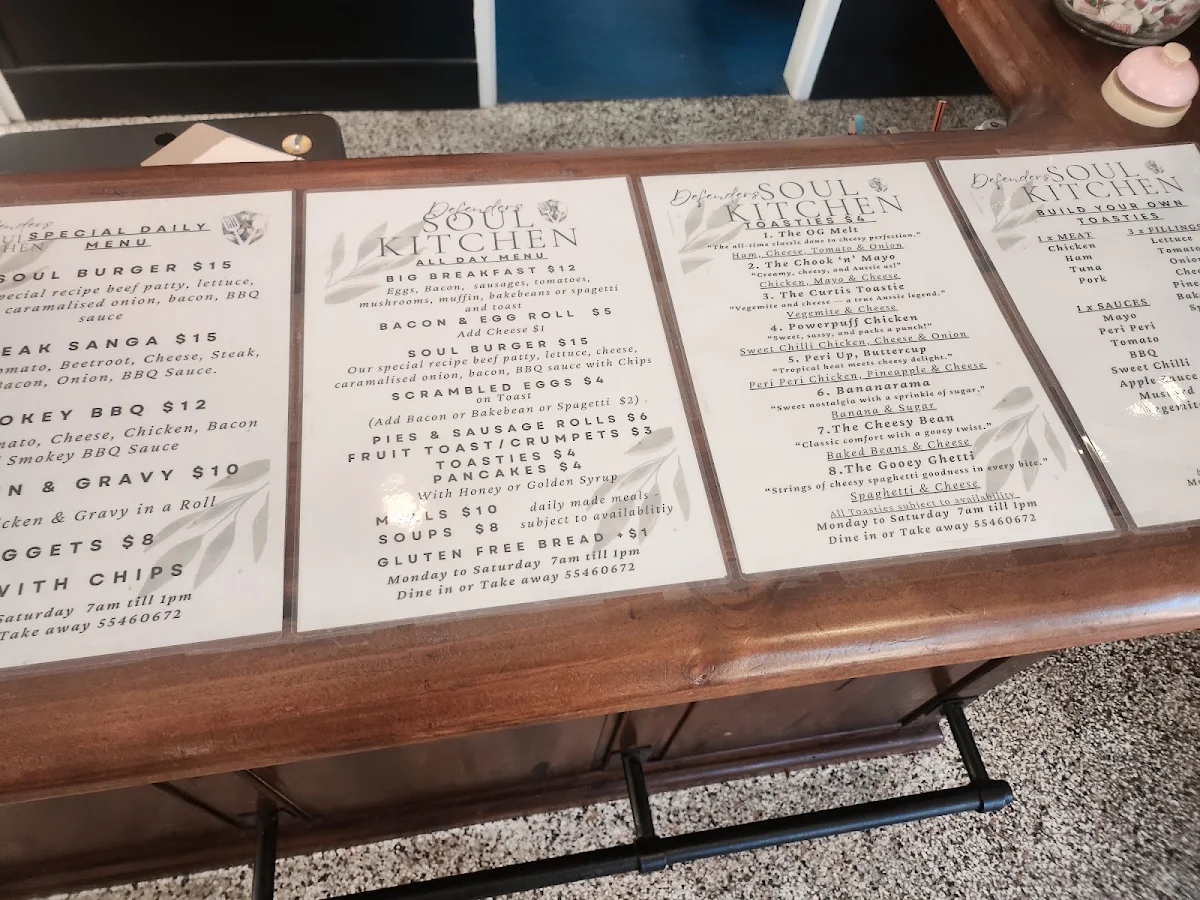 Defenders
SPECIAL DAILY
MENU
SOUL BURGER $15
special recipe beef patty, lettuce,
caramalised onion, bacon, BBQ
sauce
SANGA $15
Beetroot, Cheese, Steak,
Bacon, Onion, BBQ Sauce.
BBQ $12
Cheese, Chicken, Bacon
Smokey BBQ Sauce
& GRAVY $10
& Gravy in a Roll
$8
WITH CHIPS
Saturday 7am till 1pm
Take away 55460672
Defenders
SOUL
KITCHEN
ALL DAY MENU
BIG BREAKFAST $12
Eggs, Bacon, sausages, tomatoes,
mushrooms, muffin, bakebeans or spagetti
and toast
BACON & EGG ROLL $5
Add Cheese $1
SOUL BURGER $15
Our special recipe beef patty, lettuce, cheese,
caramalised onion, bacon, BBQ sauce with Chips
SCRAMBLED EGGS $4
on Toast
(Add Bacon or Bakebean or Spagetti $2)
PIES & SAUSAGE ROLLS $6
FRUIT TOAST/CRUMPETS $3
TOASTIES $4
PANCAKES $4
With Honey or Golden Syrup
MEALS $10 daily made meals -
SOUPS $8 subject to availablitiy
GLUTEN FREE BREAD +$1
Monday to Saturday 7am till 1pm
Dine in or Take away 55460672
Defenders SOUL
KITCHEN
TOASTIES $4
1. The OG Melt
"The all-time classic done to cheesy perfection."
Ham, Cheese, Tomato & Onion
2. The Chook 'n' Mayo
"Creamy, cheesy, and Aussie as!"
Chicken, Mayo & Cheese
3. The Curtis Toastie
"Vegemite and cheese — a true Aussie legend."
Vegemite & Cheese
4. Powerpuff Chicken
"Sweet, sassy, and packs a punch!"
Sweet Chilli Chicken, Cheese & Onion
5. Peri Up, Buttercup
"Tropical heat meets cheesy delight."
Peri Peri Chicken, Pineapple & Cheese
6. Bananarama
"Sweet nostalgia with a sprinkle of sugar."
Banana & Sugar
7.The Cheesy Bean
"Classic comfort with a gooey twist."
Baked Beans & Cheese
8.The Gooey Ghetti
"Strings of cheesy spaghetti goodness in every bite."
Spaghetti & Cheese
All Toasties subject to availability
Monday to Saturday 7am till 1pm
Dine in or Take away 55460672
Defenders SOUL
KITCHEN
BUILD YOUR OWN
TOASTIES
1 x MEAT
Chicken
Ham
Tuna
Pork
3 x FILLINGS
Lettuce
1 x SAUCES
Mayo
Peri Peri
Tomato
BBQ
Sweet Chilli
Apple Sauce
Mustard
Vegemite